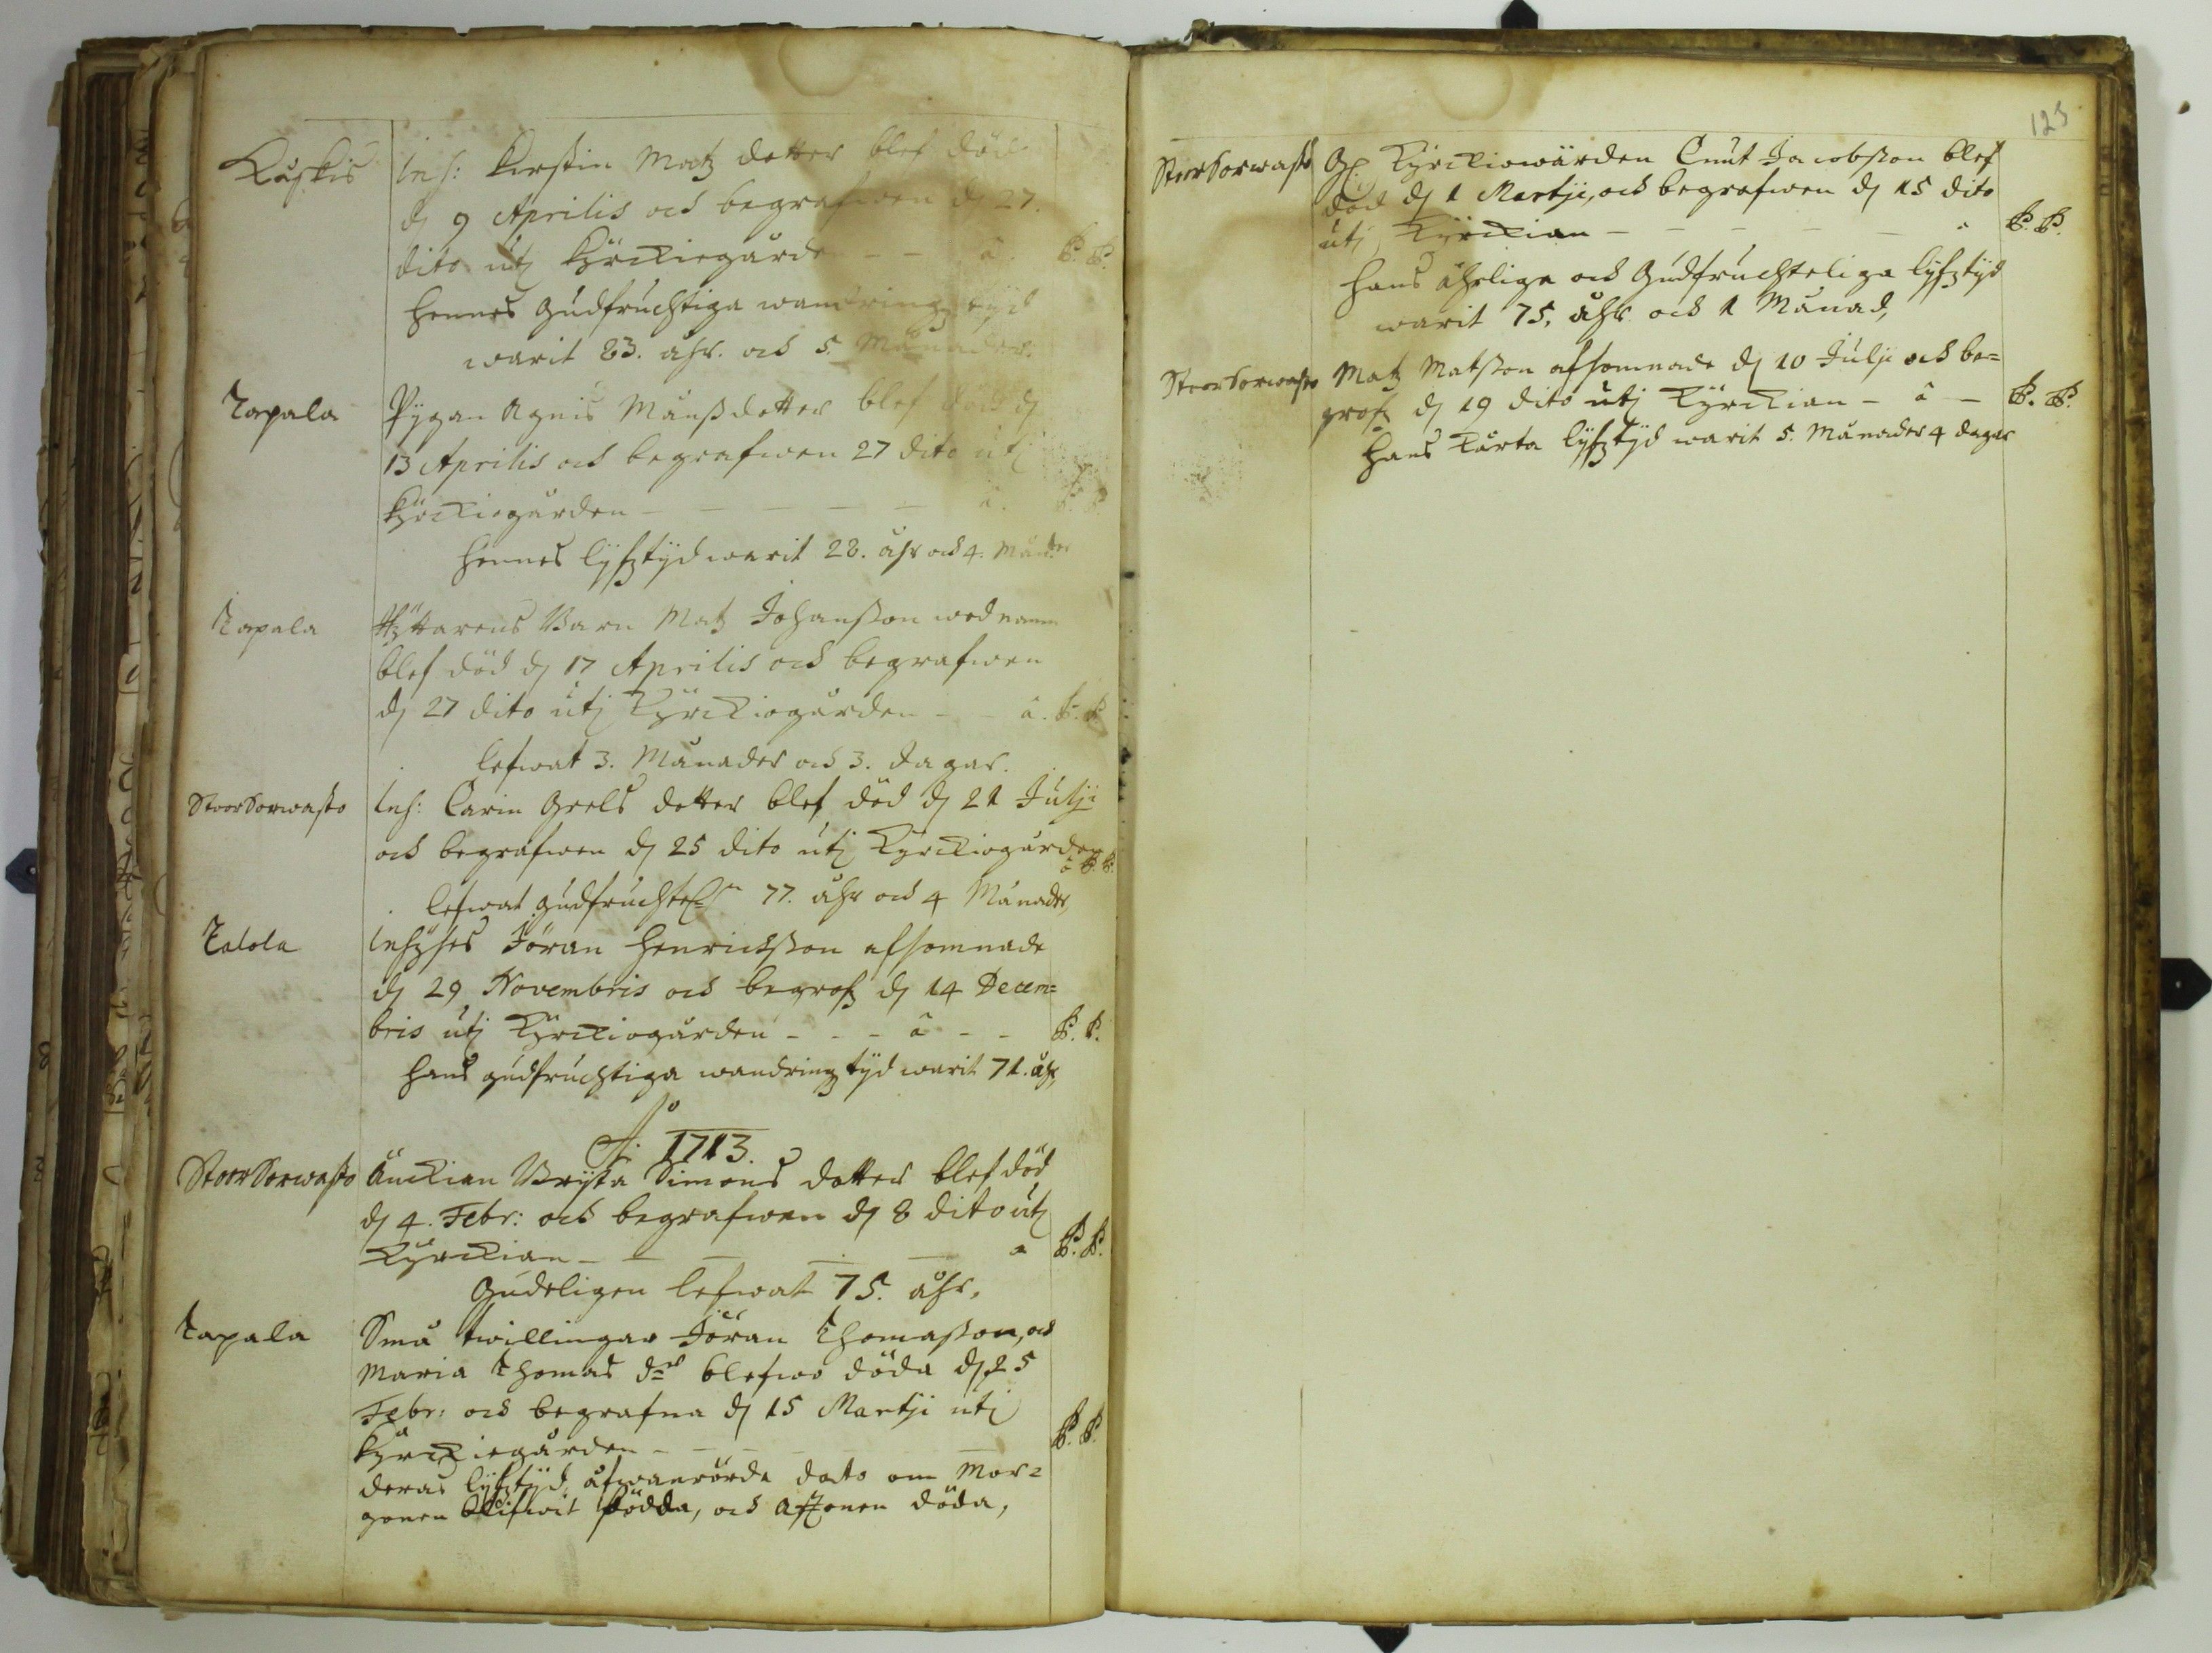 Kuskis Inh: Kirstin Matz dotter blef död
dj 9 Aprilis och begrafwen dj 27.
dito utj Kyrckiogårde - - â. P. P.
Hennes Gudfruchtiga wandringz tijd
warit 83. åhr. och 5. Månader.
Tapala Pygan Agnis Månßdotter blef död dj
13 Aprilis och begrafwen 27 dito utj
Kyrckiogården - - - - - â. P. P.
Hennes lijfztijd warit 28. åhr och 4. Månader
Tapala Ryttarens Barn Matz Johanßon wed namn
blef död dj 17 Aprilis och begrafwen
dj 27 dito utj Kyrckiogården - - â. P. P.
lefwat 3. Månader och 3. dagar.
StoorSorwasto Inh: Carin Greels dotter blef död dj 21 Julji
och begrafwen dj 25 dito utj Kyrckiogården
â P. P.
lefwat gudfruchtel:n 77. åhr och 4 Månader,
Talola Inhyses Jöran Henrichßon afsomnade
dj 29 Novembris och begrofz dj 14 Decem=
bris utj Kyrckiogården - - - â - - P. P.
Hans gudfruchtiga wandringz tijd warit 71. åhr,
Ao: 1713.
StoorSorwasto Änckian Brijta Simons dotter blef död
dj 4. Febr: och begrafwen dj 8 dito utj
Kyrckian - - - - - â P. P.
Gudeligen lefwat 75. åhr.
Tapala Små twillingar Jöran Thomaßon, och
Maria Thomas dr blefwo döda dj 25
Febr: och begrafna dj 15 Martji utj
Kyrckiogården - - - - - - P. P.
deras lijfztijd, åfwanrörde dato om Mor=
gonen blifwit födda, och Aftonen döda,
123
StoorSorwasto Gl. Kyrckiowärden Cnut Jacobßon blef
död dj 1 Martji, och begrafwen dj 15 dito
utj Kyrckian - - - - - â P. P.
Hans ährliga och Gudfruchteliga lijfztijd
warit 75. åhr och 1 Månad,
StoorSorwasto Matz Matßon afsomnade dj 10 Julji och be=
grofz dj 19 dito utj Kyrckian - â - P. P.
Hans kårta lijfztijd warit 5. Månader 4 dagar